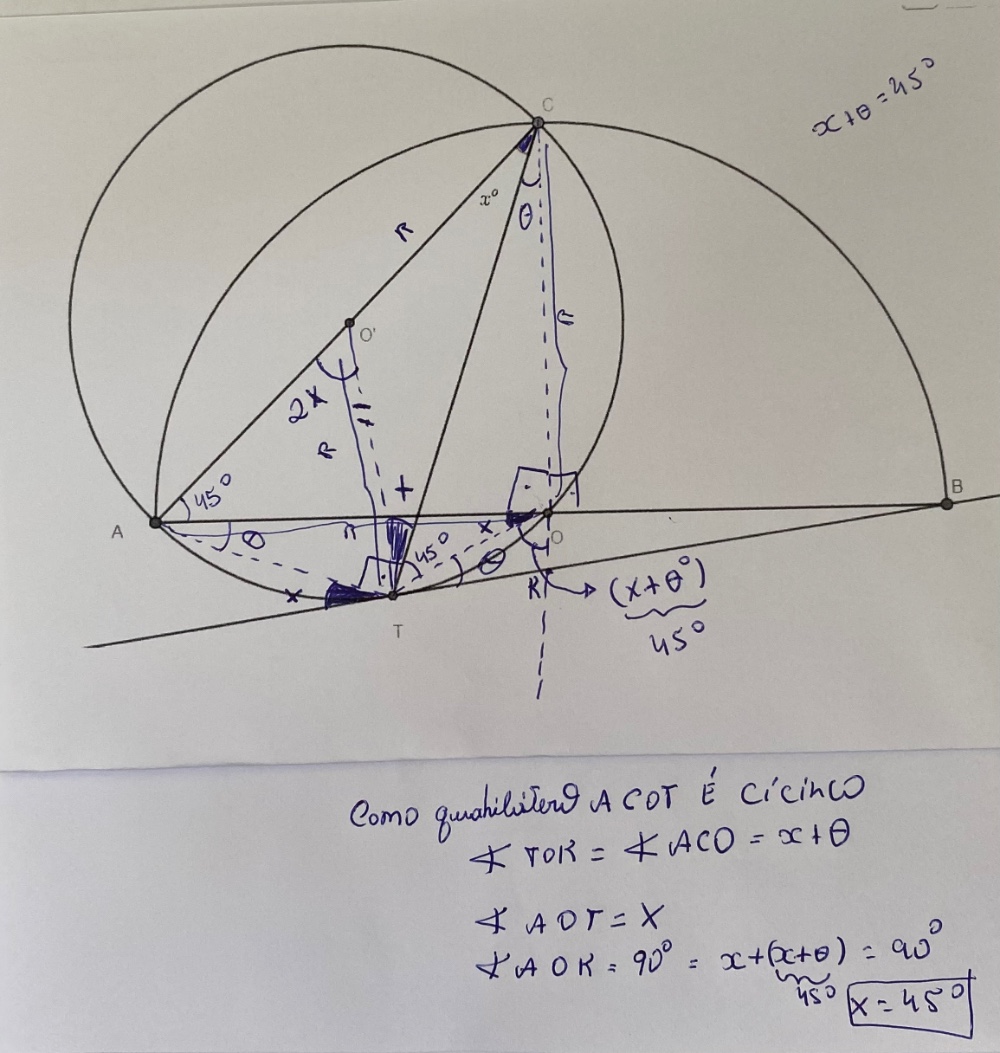 x+θ=45°
C
x°
θ
R
R
O'
2x
R
45°
A
θ
R
x
O
B
45°
θ
x
T
K
(x+θ°)
45°
Como quahilútero A COT É CíCinco
∡ TOK = ∡ ACO = x+θ
∡ AOT = X
∡ AOK = 90° = x+(x+θ) = 90°
45°
x = 45°